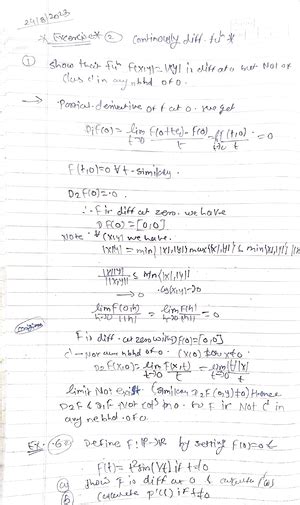 24/8/2023
* Exercise * ② Continuously diff. fun *
① Show that fun F(x,y) = |xy| is diff at 0 but Not of
Class C' in any nbhd of 0.
→ Partial derivative of f at 0. we get
D₁F(0) = lim t→0 F(0+te₁) - F(0) / t = F(t,0) / t = 0
F(t,0)=0 ∀ t - similarly.
D₂F(0) = 0.
∴ F is diff at zero. we have
DF(0) = [0,0]
Note ∀ (x,y) we have.
|xy| = min{|x|,|y|} max{|x|,|y|} ≤ min{|x|,|y|}
|xy| ≤ min{|x|,|y|}
→ 0 (x,y)→0
lim h→0 F(h) / |h| = lim h→0 F(h) / |h| = 0
F is diff. at zero with DF(0) = [0,0]
C' - Nor any nbhd of 0. (x,0) for x≠0.
D₂F(x,0) = lim t→0 F(x,t) / t = lim t→0 |t||x| / t
limit Not exist (similarly D₁F(0,y) ≠0) Hence
D₂F & D₁F Not 0. F is Not C' in
any nebhd. of 0.
Define F: R→R by setting F(0)=0 &
F(t) = t² sin(1/t) if t≠0
(a) Show F is diff at 0 & calculate F'(0)
(b) calculate F'(t) if t≠0